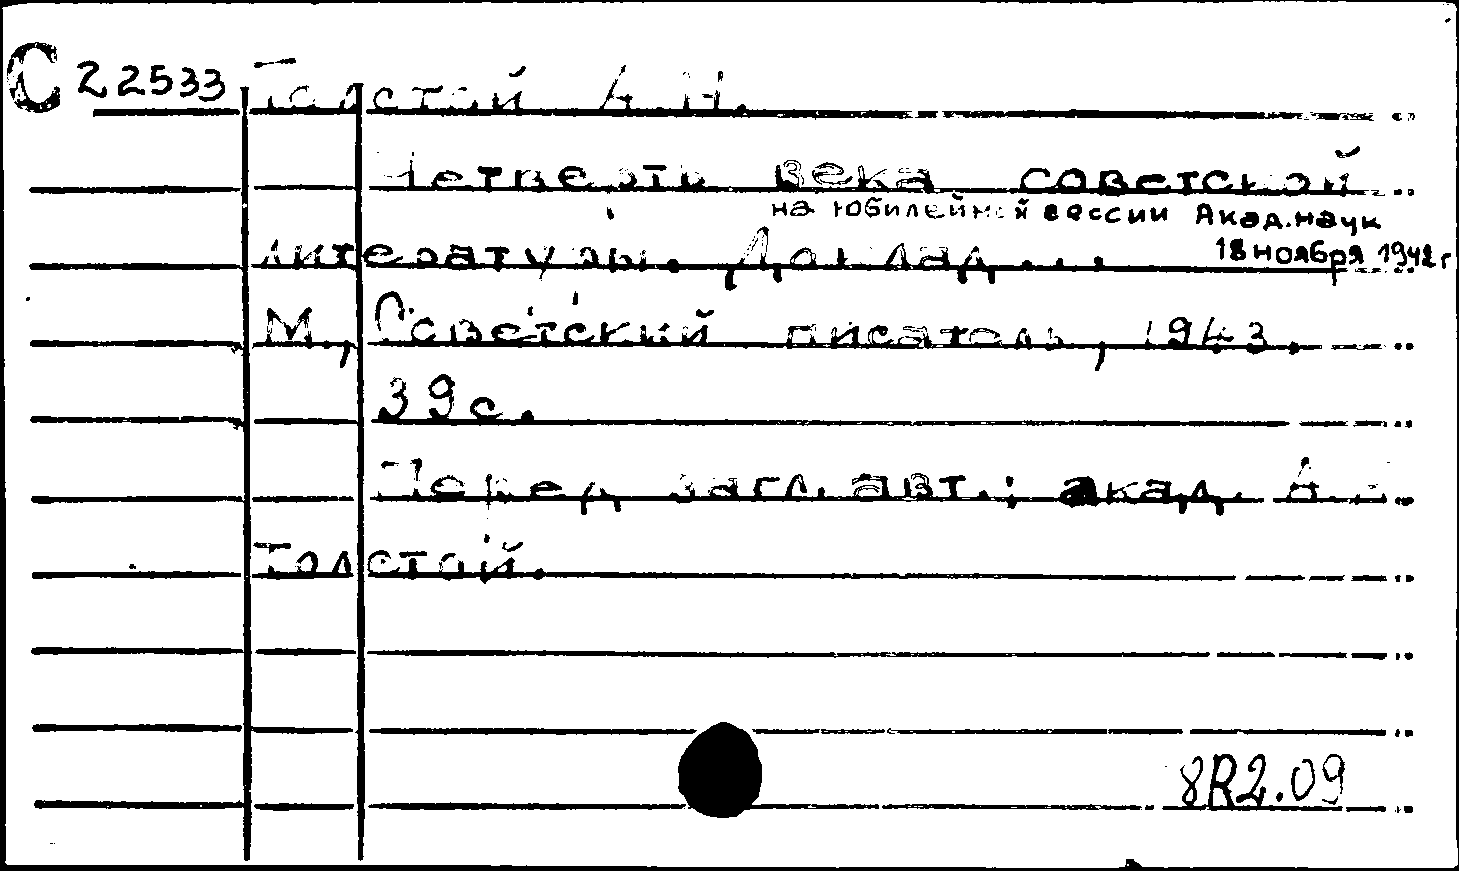 С 22533 Толстой А.Н.
Четверть века советской
на юбилейной сессии Акад. наук
литературы. Доклад...
18 ноября 1942 г
М., Советский писатель, 1943.
39 с.
Перед загл. авт.: акад. А.
Толстой.
8R2.09